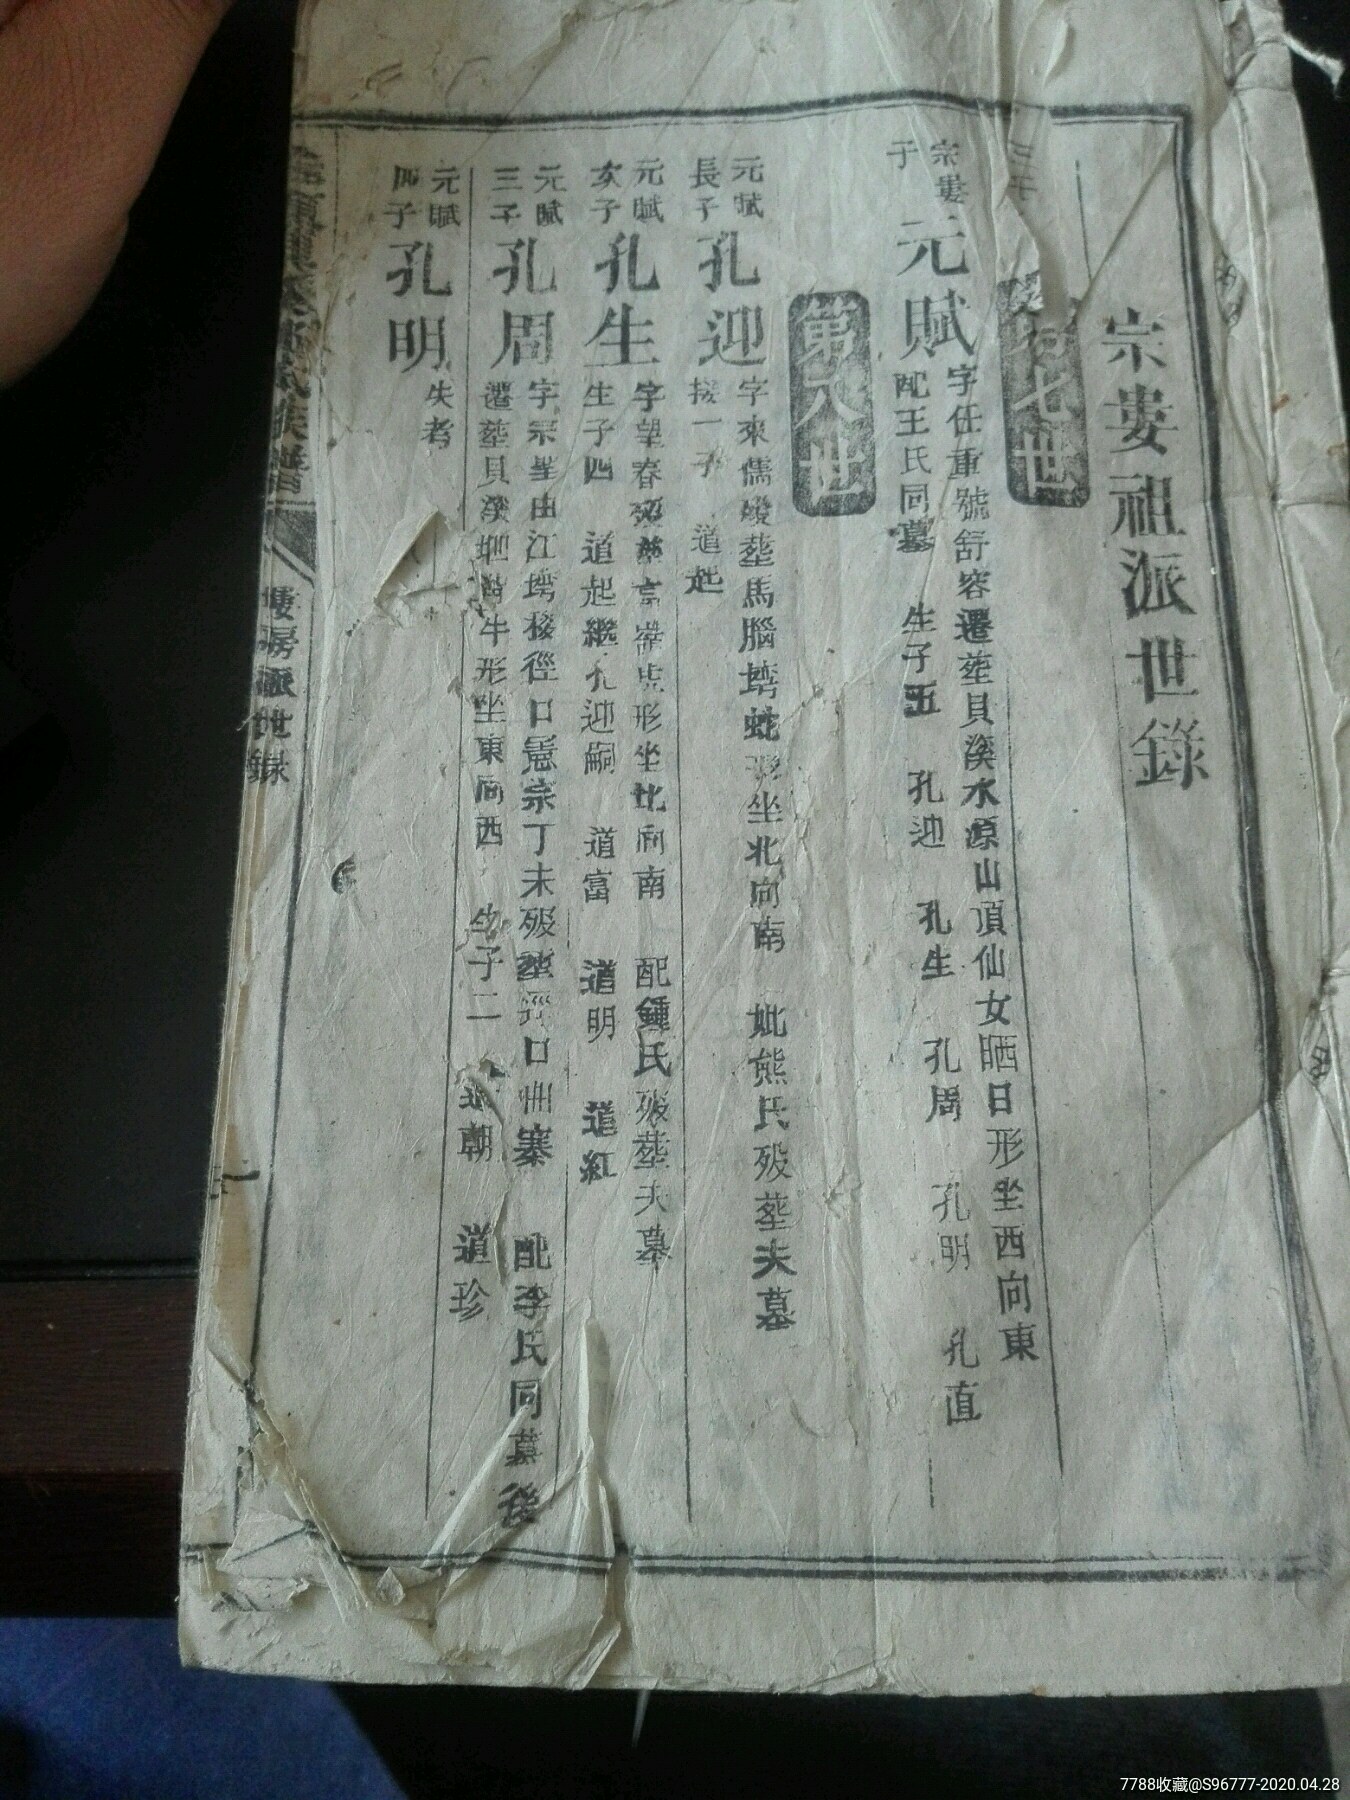 宗婁祖派世錄
七世
宗婁
子
元賦
字任重號舒容遷塟貝溪水源山頂仙女晒日形坐西向東
配王氏同墓 生子五 孔迎 孔生 孔周 孔明 孔直
第八世
元賦
長子
孔迎
字來儒歿塟馬腦塆蛇形坐北向南 妣熊氏歿塟夫墓
接一子 道起
元賦
次子
孔生
字望春歿塟 形坐北向南 配鍾氏歿塟夫墓
生子四 道起繼孔迎嗣 道富 道明 道紅
元賦
三子
孔周
字宗 由江塆移徑口憲宗丁未歿塟徑口 寨 配李氏同墓後
遷塟貝溪 牛形坐東向西 生子二 道朝 道珍
元賦
四子
孔明
失考
族譜
婁房派世錄
一
7788收藏@S96777-2020.04.28